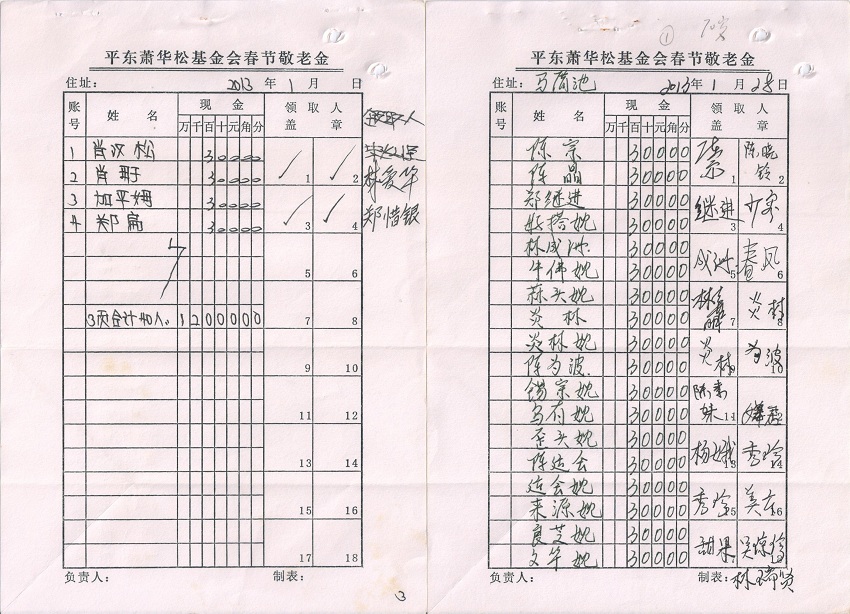 平东萧华松基金会春节敬老金
住址： 2013 年 1 月 日
账号 姓 名 现 金 领 取 人
万 千 百 十 元 角 分 盖 章
1 肖汉松 30000 1
2 肖 30000 2 林爱华
3 加平姆 30000 3
4 郑扁 30000 4 郑惜银
5 6
3页合计40人。 1200000 7 8
9 10
11 12
13 14
15 16
17 18
负责人： 制表：
3
① 70岁
平东萧华松基金会春节敬老金
住址： 马 池 2013 年 1 月 28 日
账号 姓 名 现 金 领 取 人
万 千 百 十 元 角 分 盖 章
陈宗 30000 宗 1 陈晓铃 2
陈晶 30000
郑继进 30000 继进 3 4
搭妣 30000
林成洲 30000 成洲 5 春凤 6
牛佛妣 30000
蒜头妣 30000 7 炎林 8
炎林 30000
炎林妣 30000 炎林 为波 10
陈为波 30000
锡宗妣 30000 陈素妹 11
乌有妣 30000
歪头妣 30000 杨娥 秀玲 14
陈运会 30000
运会妣 30000 秀玲 5 美 6
来源妣 30000
良芝妣 30000 甜果
文华妣 30000
负责人： 制表：林瑞贤